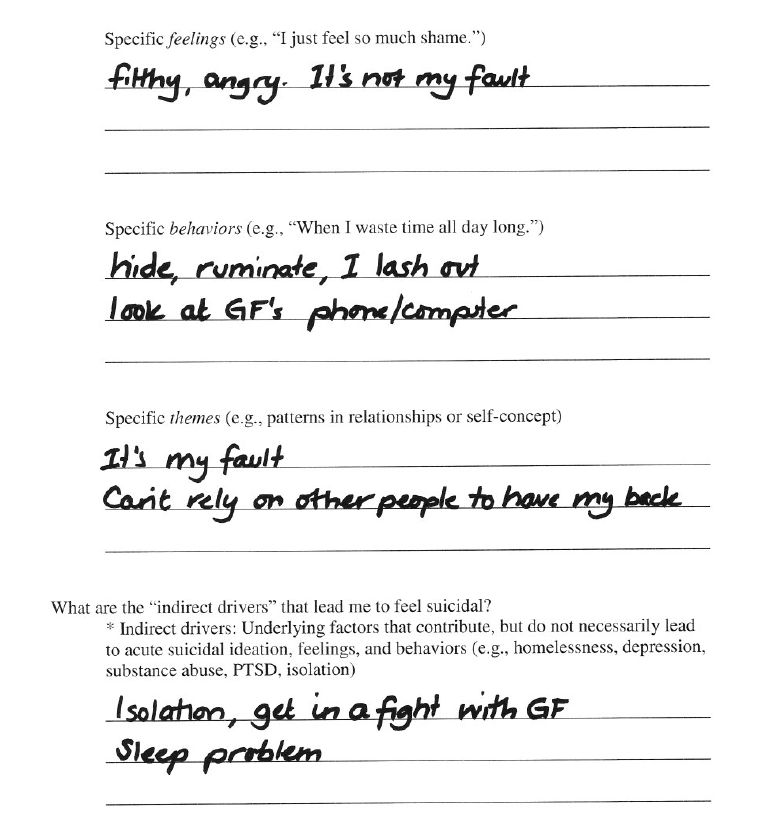 Specific feelings (e.g., “I just feel so much shame.”)
filthy, angry. It's not my fault
Specific behaviors (e.g., “When I waste time all day long.”)
hide, ruminate, I lash out
look at GF's phone/computer
Specific themes (e.g., patterns in relationships or self-concept)
It's my fault
Can't rely on other people to have my back
What are the “indirect drivers” that lead me to feel suicidal?
* Indirect drivers: Underlying factors that contribute, but do not necessarily lead
to acute suicidal ideation, feelings, and behaviors (e.g., homelessness, depression,
substance abuse, PTSD, isolation)
Isolation, get in a fight with GF
Sleep problem